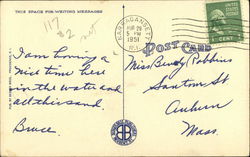 THIS SPACE FOR WRITING MESSAGES
117
NARRAGANSETT
AUG 29
5 PM
1951
R.I.
POST CARD
I am having a
nice time here
in the water and
all this sand.
Bruce.
Miss Beverly Robbins
Santom St
Auburn
Mass.